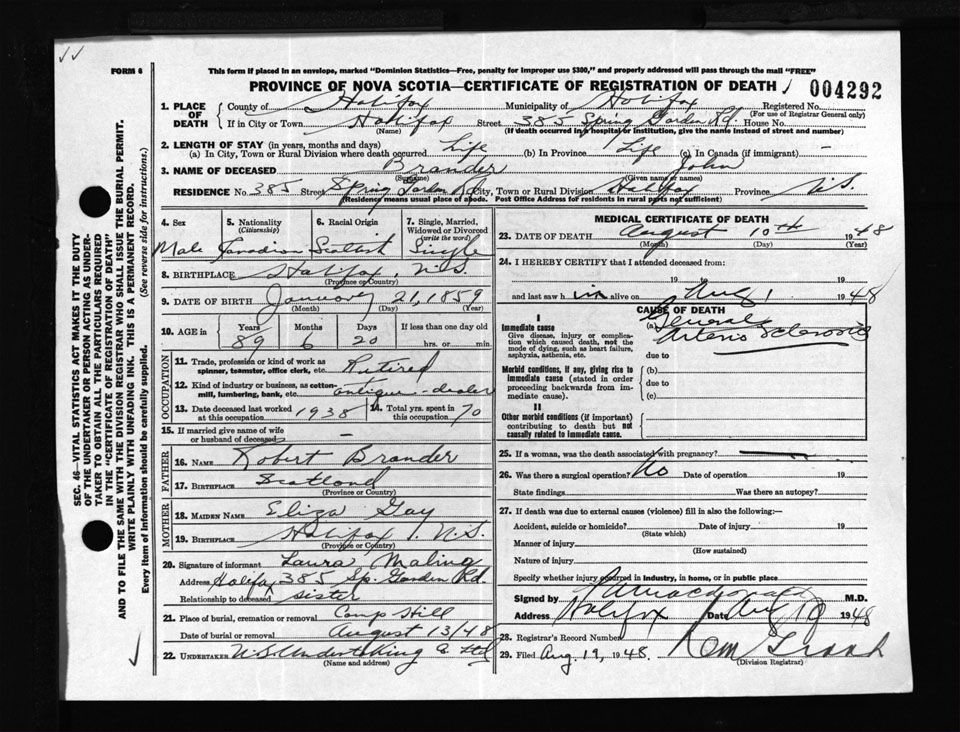 FORM 6
This form if placed in an envelope, marked "Dominion Statistics—Free, penalty for improper use $300," and properly addressed will pass through the mail "FREE"
PROVINCE OF NOVA SCOTIA—CERTIFICATE OF REGISTRATION OF DEATH
004292
1. PLACE OF DEATH
County of Halifax Municipality of Halifax Registered No.
(For use of Registrar General only)
If in City or Town Halifax Street 385 Spring Garden Rd. House No.
(Name) (If death occurred in a hospital or institution, give the name instead of street and number)
2. LENGTH OF STAY (in years, months and days)
(a) In City, Town or Rural Division where death occurred Life (b) In Province Life (c) In Canada (if immigrant) –
3. NAME OF DECEASED Brander John
(Surname) (Given name or names)
RESIDENCE No. 385 Street Spring Garden Rd City, Town or Rural Division Halifax Province N.S.
(Residence means usual place of abode. Post Office Address for residents in rural parts not sufficient)
4. Sex
Male
5. Nationality (Citizenship)
Canadian
6. Racial Origin
Scottish
7. Single, Married, Widowed or Divorced (write the word)
Single
8. BIRTHPLACE Halifax, N.S.
(Province or Country)
9. DATE OF BIRTH January 21, 1859
(Month) (Day) (Year)
10. AGE in Years Months Days If less than one day old
89 6 20 hrs. or min.
OCCUPATION
11. Trade, profession or kind of work as spinner, teamster, office clerk, etc. Retired
12. Kind of industry or business, as cotton-mill, lumbering, bank, etc. antique-dealer
13. Date deceased last worked at this occupation 1938
14. Total yrs. spent in this occupation 70
15. If married give name of wife or husband of deceased –
FATHER
16. NAME Robert Brander
17. BIRTHPLACE Scotland
(Province or Country)
MOTHER
18. MAIDEN NAME Eliza Gay
19. BIRTHPLACE Halifax, N.S.
(Province or Country)
20. Signature of informant Laura Maling
Address Halifax 385 Sp. Garden Rd.
Relationship to deceased sister
21. Place of burial, cremation or removal Camp Hill
Date of burial or removal August 13/48
22. UNDERTAKER N.S. Undertaking Co Ltd
(Name and address)
MEDICAL CERTIFICATE OF DEATH
23. DATE OF DEATH August 10th 1948
(Month) (Day) (Year)
24. I HEREBY CERTIFY that I attended deceased from:
19 to 19
and last saw him alive on Aug 1 1948
CAUSE OF DEATH
I
Immediate cause
Give disease, injury or complication which caused death, not the mode of dying, such as heart failure, asphyxia, asthenia, etc.
(a) General Arterio Sclerosis
due to
Morbid conditions, if any, giving rise to immediate cause (stated in order proceeding backwards from immediate cause).
(b)
due to
(c)
II
Other morbid conditions (if important) contributing to death but not causally related to immediate cause.
25. If a woman, was the death associated with pregnancy?
26. Was there a surgical operation? No Date of operation 19
State findings Was there an autopsy?
27. If death was due to external causes (violence) fill in also the following:—
Accident, suicide or homicide? Date of injury 19
(State which)
Manner of injury
(How sustained)
Nature of injury
Specify whether injury occurred in industry, in home, or in public place
Signed by M.D.
Address Halifax Date Aug 10 1948
28. Registrar's Record Number
29. Filed Aug. 19, 1948.
(Division Registrar)
SEC. 46—VITAL STATISTICS ACT MAKES IT THE DUTY
OF THE UNDERTAKER OR PERSON ACTING AS UNDER-
TAKER TO OBTAIN ALL THE PARTICULARS REQUIRED
IN THE "CERTIFICATE OF REGISTRATION OF DEATH"
AND TO FILE THE SAME WITH THE DIVISION REGISTRAR WHO SHALL ISSUE THE BURIAL PERMIT.
WRITE PLAINLY WITH UNFADING INK. THIS IS A PERMANENT RECORD.
Every item of information should be carefully supplied. (See reverse side for instructions.)